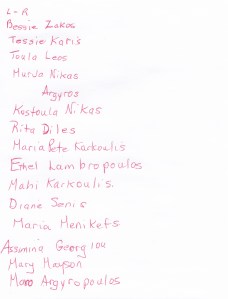 L - R
Bessie Zakos
Tessie Karis
Toula Leos
Nikas
Argyros
Kostoula Nikas
Rita Diles
Maria Karkoulis
Ethel Lambropoulos
Mahi Karkoulis.
Diane Senis
Maria Menikefs
Assimina Georgiou
Mary
Argyropoulos